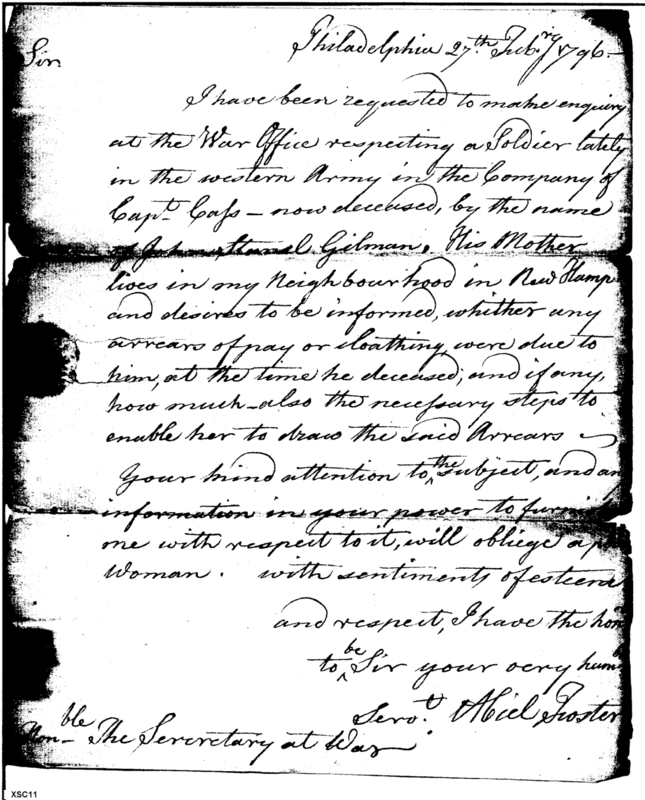 Philadelphia 27th Feb.ry 1796–
Sir
I have been requested to make enquiry
at the War Office respecting a Soldier lately
in the western Army in the Company of
Capt. Cass – now deceased, by the name
of John Gilman. His Mother
lives in my Neighbourhood in New Hamp
and desires to be informed, whither any
arrears of pay or cloathing were due to
him, at the time he deceased; and if any,
how much – also the necessary steps to
enable her to draw the said Arrears –
Your kind attention to the subject, and an
information in your power to furni
me with respect to it, will obliege a p
Woman. with sentiments of esteem
and respect, I have the hon
to be Sir your very humb
Servt. Abiel Foster
Honble The Secretary at War
XSC11